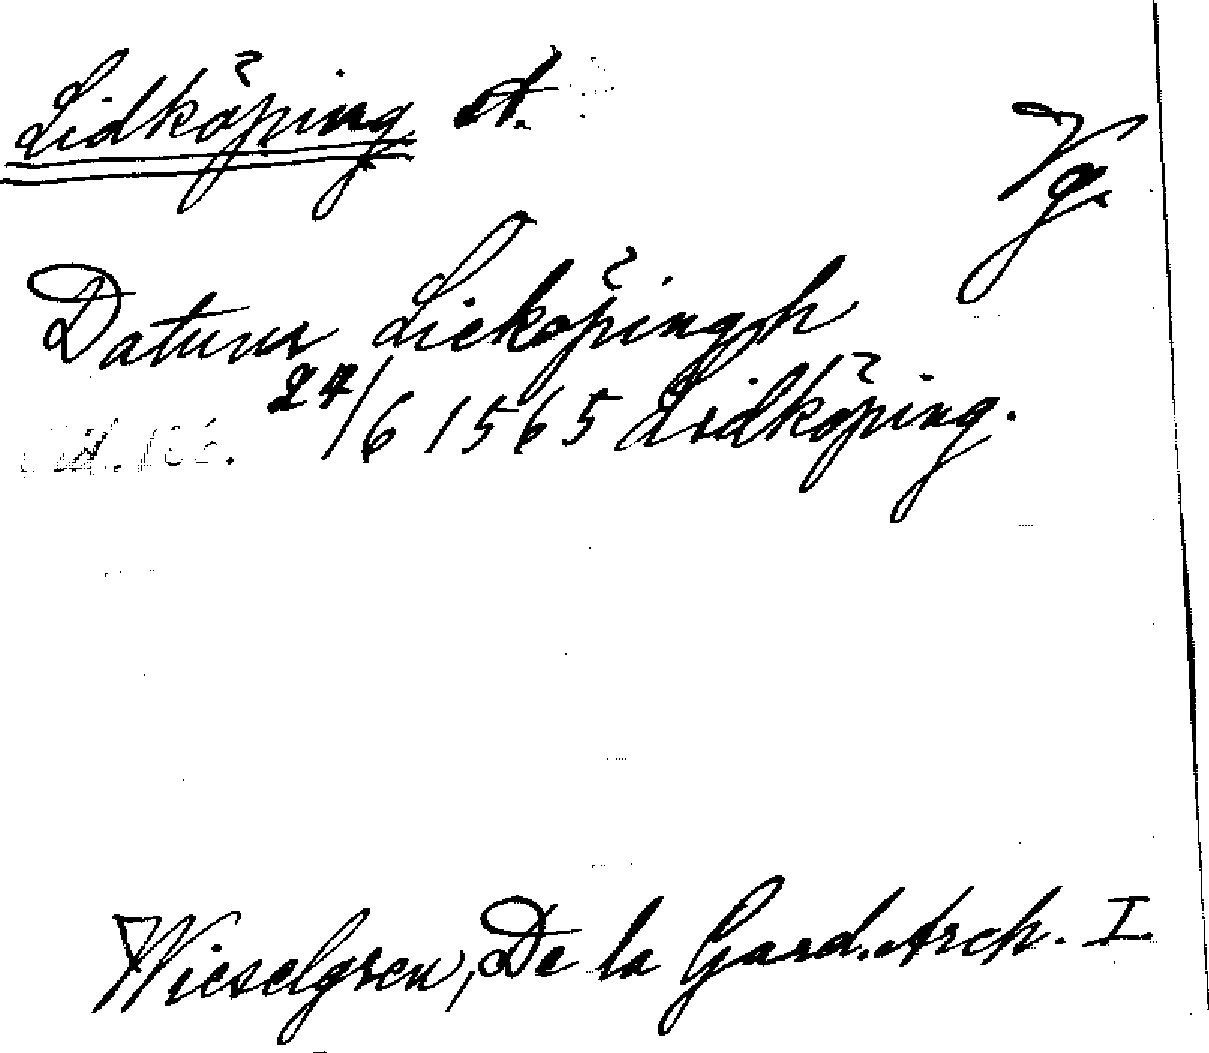 Lidköping st.
Vg.
Datum Lieköpingh
24/6 1565 Lidköping.
Wieselgren, De la Gard. Arch. I.